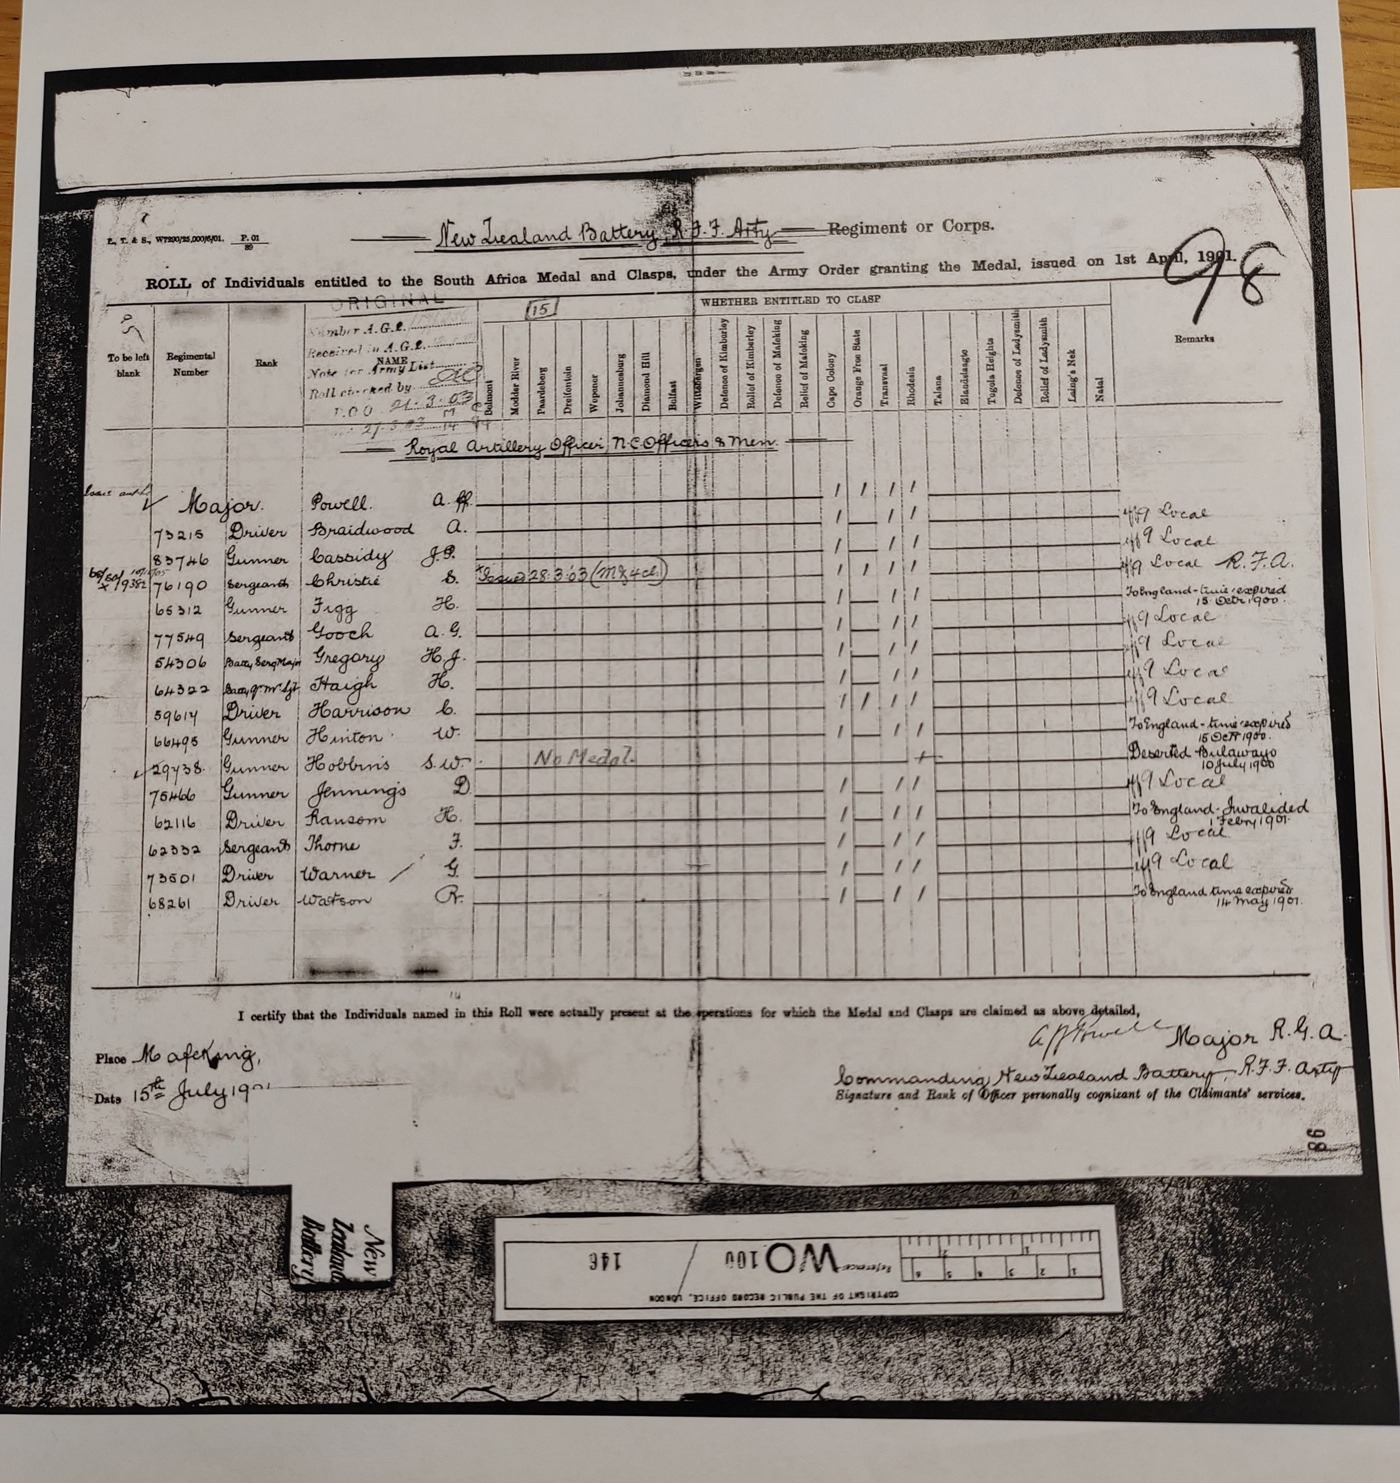 New Zealand Battery, R.F.F. Arty Regiment or Corps.
98
ROLL of Individuals entitled to the South Africa Medal and Clasps, under the Army Order granting the Medal, issued on 1st April, 1901.
ORIGINAL
Number A.G.
Received in A.G.
Note for Army List
Roll checked by
21.3.03
15
WHETHER ENTITLED TO CLASP
To be left blank
Regimental Number
Rank
NAME
Belmont
Modder River
Paardeberg
Dreifontein
Wepener
Johannesburg
Diamond Hill
Belfast
Wittebergen
Defence of Kimberley
Relief of Kimberley
Defence of Mafeking
Relief of Mafeking
Cape Colony
Orange Free State
Transvaal
Rhodesia
Talana
Elandslaagte
Tugela Heights
Defence of Ladysmith
Relief of Ladysmith
Laing's Nek
Natal
Remarks
Royal Artillery Officer, N.C. Officers & Men.
Major. Powell. A. ff. / / / /
73215 Driver Braidwood A. / / / Local
83746 Gunner Cassidy / / / Local
76190 Sergeant Christie S. Issued 28.3.03 (M & 4 cl.) / / / / Local R.F.A.
65312 Gunner Figg H. / / / To England - time expired 15 Octr 1900.
77549 Sergeant Gooch A. G. / / / Local
54306 Batty Serg Major Gregory H. J. / / / Local
64322 Haigh H. / / / Local
59614 Driver Harrison C. / / / / Local
66495 Gunner Hinton W. / / / To England - time expired 15 Octr 1900.
29438. Gunner Hobbins S. W. No Medal. + Deserted Bulawayo 10 July 1900
75466 Gunner Jennings D / / / Local
62116 Driver Ransom H. / / / To England - Invalided 1 Febry 1901.
62332 Sergeant Thorne F. / / / Local
73501 Driver Warner / G. / / / Local
68261 Driver Watson R. / / / To England time expired 14 May 1901.
I certify that the Individuals named in this Roll were actually present at the operations for which the Medal and Clasps are claimed as above detailed,
Place Mafeking,
Date 15th July 1901
A ff Powell Major R.G.A.
Commanding, New Zealand Battery, R.F.F. Arty
Signature and Rank of Officer personally cognizant of the Claimants' services.
98
New Zealand Battery
Reference WO 100 / 146
COPYRIGHT OF THE PUBLIC RECORD OFFICE, LONDON
1 2 3 4 5 6
1 2